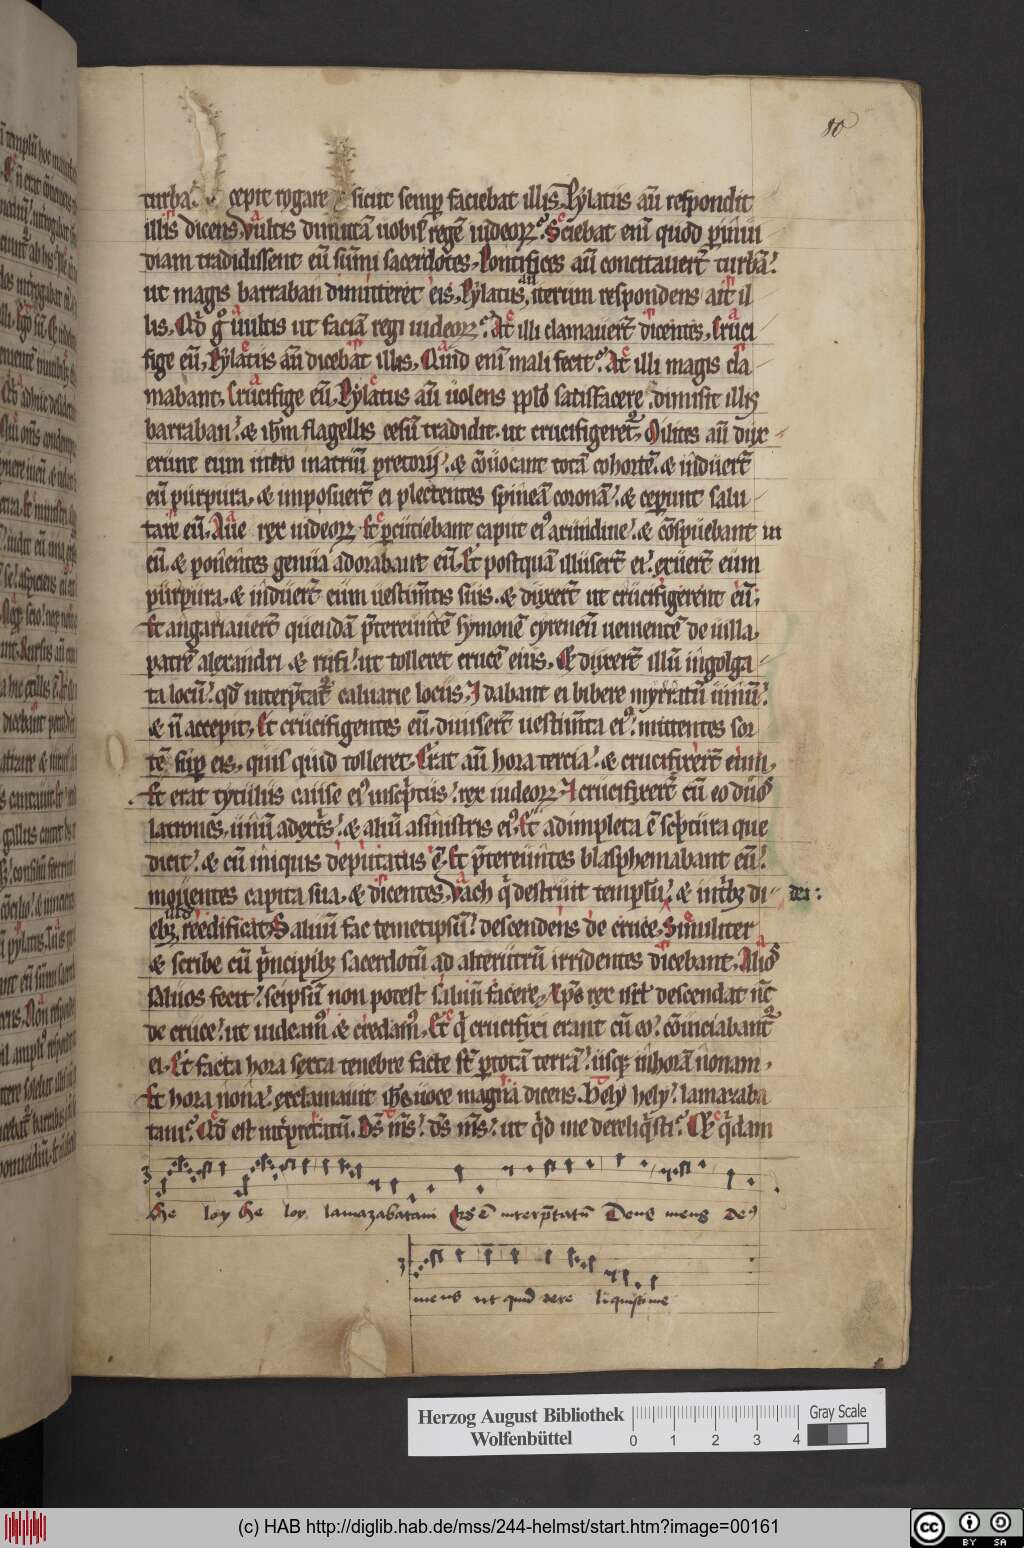 80
turba. cepit rogare sicut semꝑ faciebat illis. Pẏlatus aū respondit
illis dicens. Vultis dimittā uobis regē iudeoꝝ. Sciebat enī quod ꝑ inui
diam tradidissent eū sūmi sacerdotes. Pontifices aū concitauerūt turbā.
ut magis barraban dimitteret eis. Pẏlatus aū iterum respondens ait il
lis. Qd gͦ uultis ut faciā regi iudeoꝝ. At illi clamauerūt dicentes. Cruci
fige eū. Pẏlatus aū dicebat illis. Quid enī mali fecit. At illi magis cla
mabant. Crucifige eū. Pẏlatus aū uolens ppło satisfacere. dimisit illis
barraban. ⁊ ihm flagellis cesū tradidit. ut crucifigeret. Milites aū dux
erunt eum intro in atriū pretorii. ⁊ cōuocant totā cohortē. ⁊ induerūt
eū purpura. ⁊ imposuerūt ei plectentes spineā coronā. ⁊ ceperunt salu
tare eū. Aue rex iudeoꝝ. Et ꝑcutiebant caput eiꝰ arundine. ⁊ cōspuebant in
eū. ⁊ ponentes genua adorabant eū. Et postquā illuserūt ei. exuerūt eum
purpura. ⁊ induerūt eum uestimtis suis. ⁊ duxerūt ut crucifigerent eū.
Et angariauerūt quendā p̄tereuntē sẏmonē cẏreneū uenientē de uilla.
patrē alexandri ⁊ rufi. ut tolleret crucē eius. Et duxerūt illū in golga
ta locū. qd interp̄tatur caluarie locus. I dabant ei bibere mẏrratū uinū.
⁊ n̄ accepit. Et crucifigentes eū. diuiserūt uestimta eiꝰ. mittentes sor
tē suꝑ eis. quis quid tolleret. Erat aū hora tercia. ⁊ crucifixerūt eum.
Et erat tẏtulus cause eiꝰ inscptus. rex iudeoꝝ. I crucifixerūt cū eo duos
latrones. unū a dextris. ⁊ aliū a sinistris eiꝰ. Et adimpleta ē scptura que
dicit. ⁊ cū iniquis deputatus ē. Et p̄tereuntes blasphemabant eū.
mouentes capita sua. ⁊ dicentes. Vach q destruit templū dei: ⁊ in tbꝫ di
ebꝫ illd reedificat. Saluū fac temetipsū. descendens de cruce. Similiter
⁊ scribe cū pncipibꝫ sacerdotū ad alterutrū irridentes dicebant. Alios
saluos fecit. seipsū non potest saluū facere. Xpc rex isrl descendat nc
de cruce. ut uideamꝰ ⁊ credamꝰ. Et q crucifixi erant cū eo. cōuiciabant
ei. Et facta hora sexta tenebre facte st ꝑ totā terrā. usqꝫ in horā nonam.
Et hora nona. exclamauit ihs uoce magna dicens. Helẏ helẏ. lamazaba
tani. Qd est intp̄tatū. Ds ms. ds ms. ut qd me dereliqsti. Et qdam
He loy He loy lamazabatani Qd ē interp̄tatū Deus meus deꝰ
meus ut quid dere liquisti me
Herzog August Bibliothek
Wolfenbüttel
0 1 2 3 4
Gray Scale
(c) HAB http://diglib.hab.de/mss/244-helmst/start.htm?image=00161
cc BY SA